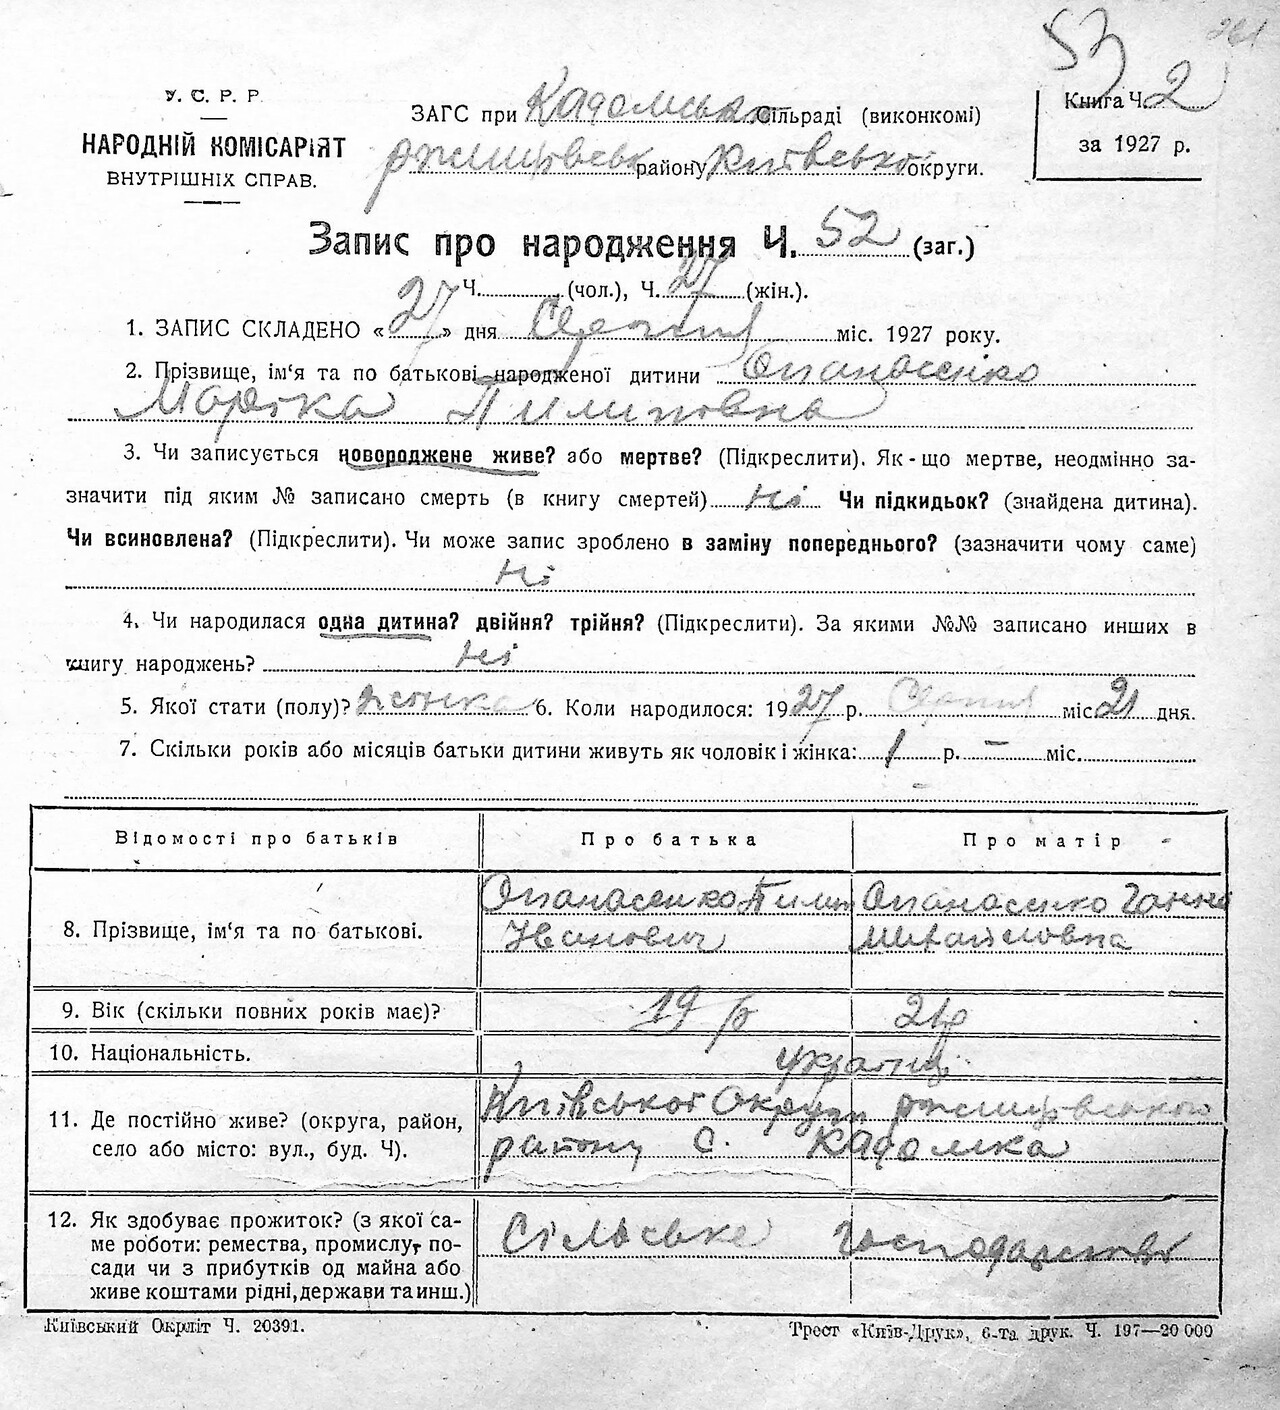 53 261
У. С. Р. Р.
НАРОДНІЙ КОМІСАРІЯТ
ВНУТРІШНІХ СПРАВ.
ЗАГС при Кадомській сільраді (виконкомі)
Ржищівськ району Київської округи.
Книга Ч. 2
за 1927 р.
Запис про народження Ч. 52 (заг.)
Ч. (чол.), Ч. 27 (жін.).
1. ЗАПИС СКЛАДЕНО « 27 » дня Серпня міс. 1927 року.
2. Прізвище, ім'я та по батькові народженої дитини Опанасенко
Марійка Пилиповна
3. Чи записується новороджене живе? або мертве? (Підкреслити). Як-що мертве, неодмінно за-
значити під яким № записано смерть (в книгу смертей) Ні Чи підкидьок? (знайдена дитина).
Чи всиновлена? (Підкреслити). Чи може запис зроблено в заміну попереднього? (зазначити чому саме)
Ні
4. Чи народилася одна дитина? двійня? трійня? (Підкреслити). За якими №№ записано инших в
книгу народжень? Ні
5. Якої стати (полу)? жінка 6. Коли народилося: 1927 р. Серпня міс 21 дня.
7. Скільки років або місяців батьки дитини живуть як чоловік і жінка: 1 р. – міс.
Відомості про батьків Про батька Про матір
8. Прізвище, ім'я та по батькові. Опанасенко Пилип Опанасенко Ганна
Иванович Михайловна
9. Вік (скільки повних років має)? 19 р 21р
10. Національність. українці
11. Де постійно живе? (округа, район, Київської Округи Ржищівського
село або місто: вул., буд. Ч). району С. Кадомка
12. Як здобуває прожиток? (з якої са-
ме роботи: ремества, промислу, по- Сільське господарство
сади чи з прибутків од майна або
живе коштами рідні, держави та инш.)
Київський Окрліт Ч. 20391.
Трест «Київ-Друк», 6-та друк. Ч. 197—20 000